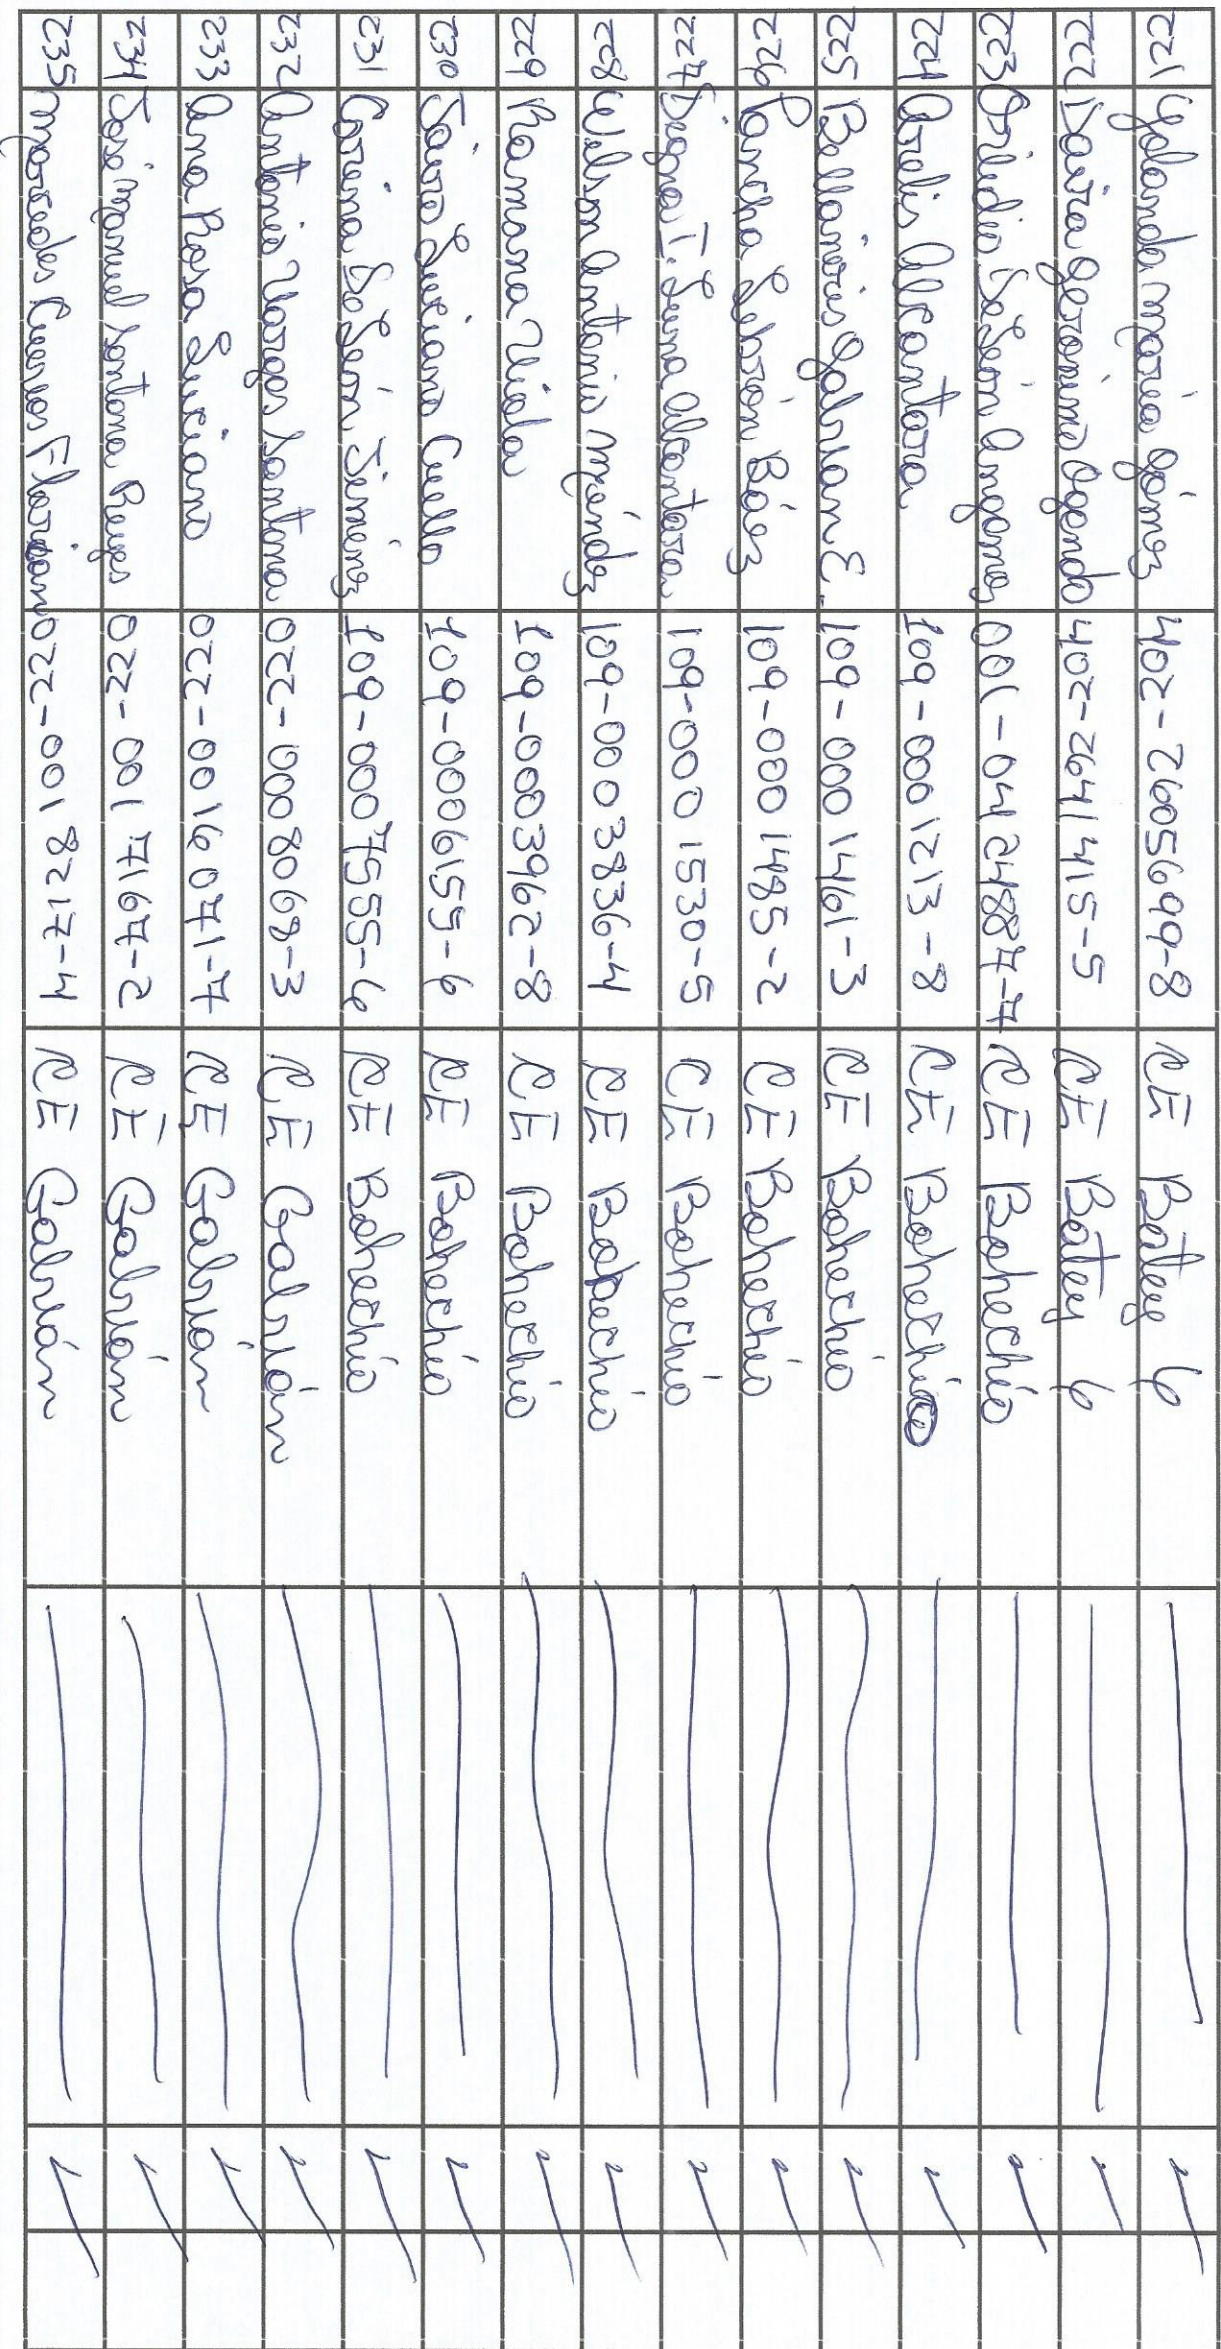 221 Yolanda María Gómez 402-2605699-8 RE Batey 6 1
222 Daira Geronimo Ogando 402-2641415-5 RE Batey 6 1
223 Ovidio De León 001-0424887-7 RE Bohechio 1
224 Arelis Alcantara 109-0001213-8 RE Bohechio 1
225 Bellaniris Galvan E. 109-0001461-3 RE Bohechio 1
226 Pancha Lebrón Báez 109-0001485-2 RE Bohechio 1
227 Digna I. Luna Alcantara 109-0001530-5 RE Bohechio 1
228 Wilson Antonio Méndez 109-0003836-4 RE Bohechio 1
229 Ramona Vidla 109-0003962-8 RE Bohechio 1
230 Jairo Luciano Cuello 109-0006155-6 RE Bohechio 1
231 Corina De León Jiménez 109-0007555-6 RE Bohechio 1
232 Antonio Vargas Santana 022-0008068-3 RE Galván 1
233 Ana Rosa Luciano 022-0016071-7 RE Galván 1
234 José Manuel Santana Reyes 022-0017167-2 RE Galván 1
235 Mercedes Cuevas Florian 022-0018217-4 RE Galván 1